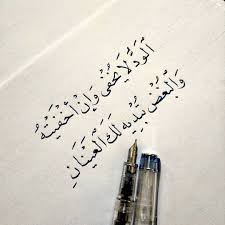 الودُّ لا يخفى وإن أخفيتهُ
والبغضُ تبديه لك العينانِ